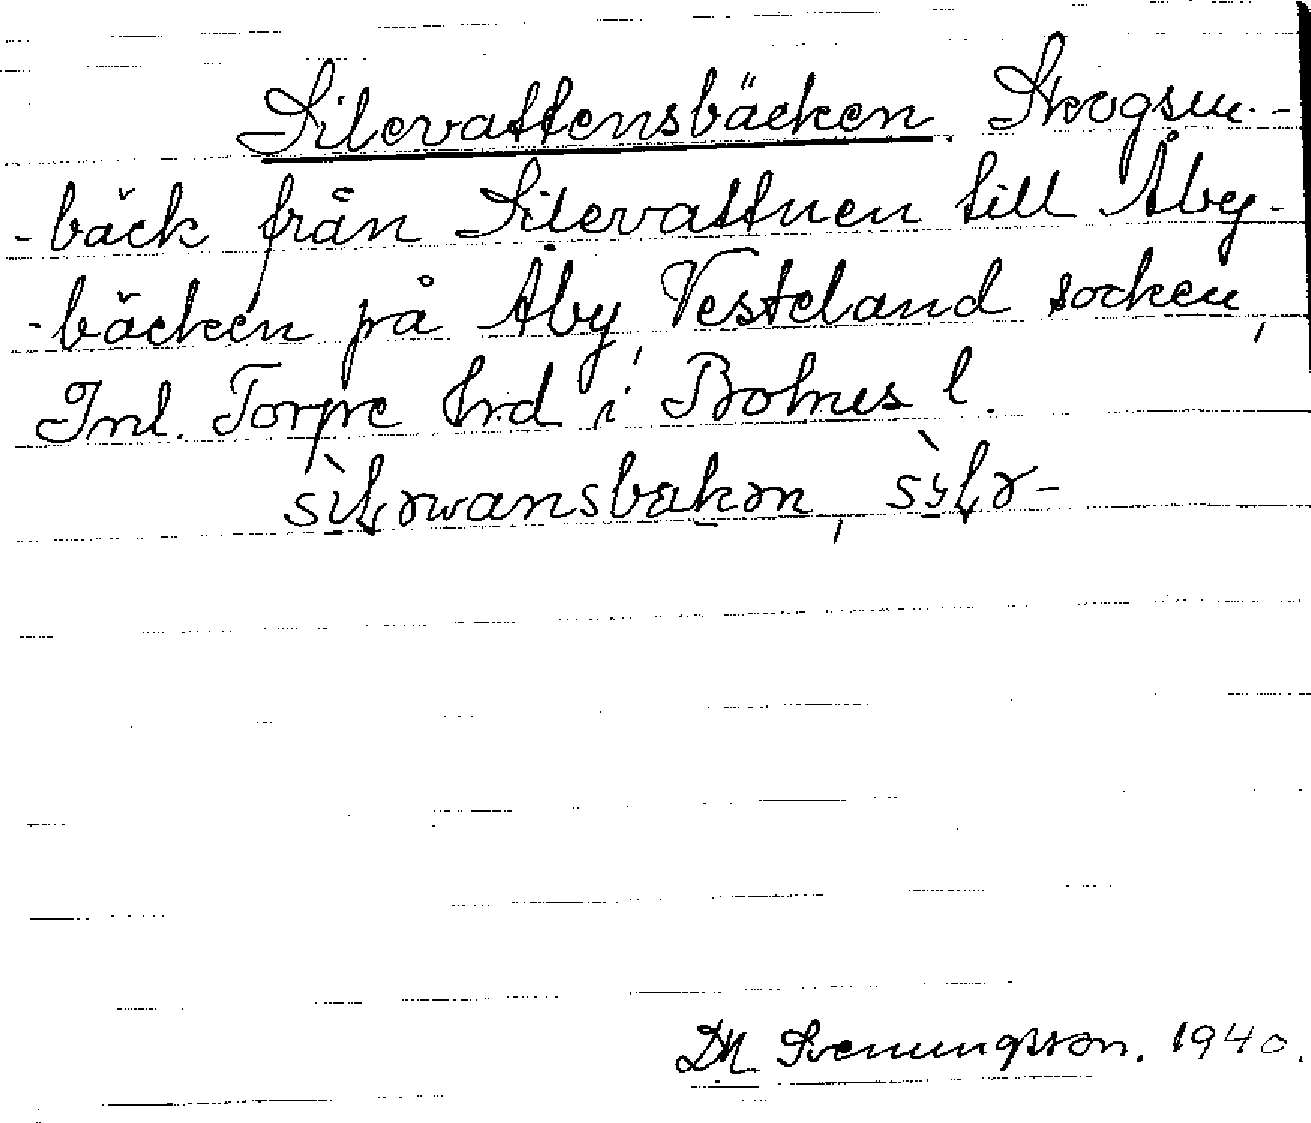 Silevattensbäcken. Skogsm-
-bäck från Silevattnen till Åby-
-bäcken på Åby, Vesteland socken,
Inl. Torpe hrd i Bohus l.
sìlərwansbækən, sỳlər-
DN Svenungsson. 1940.